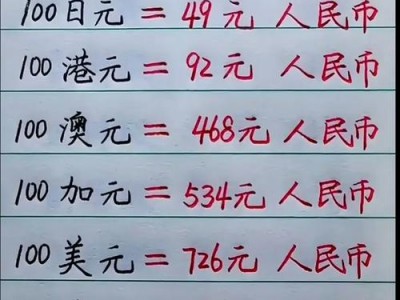 100日元=49元 人民币
100港元=92元 人民币
100澳元=468元 人民币
100加元=534元 人民币
100美元=726元 人民币